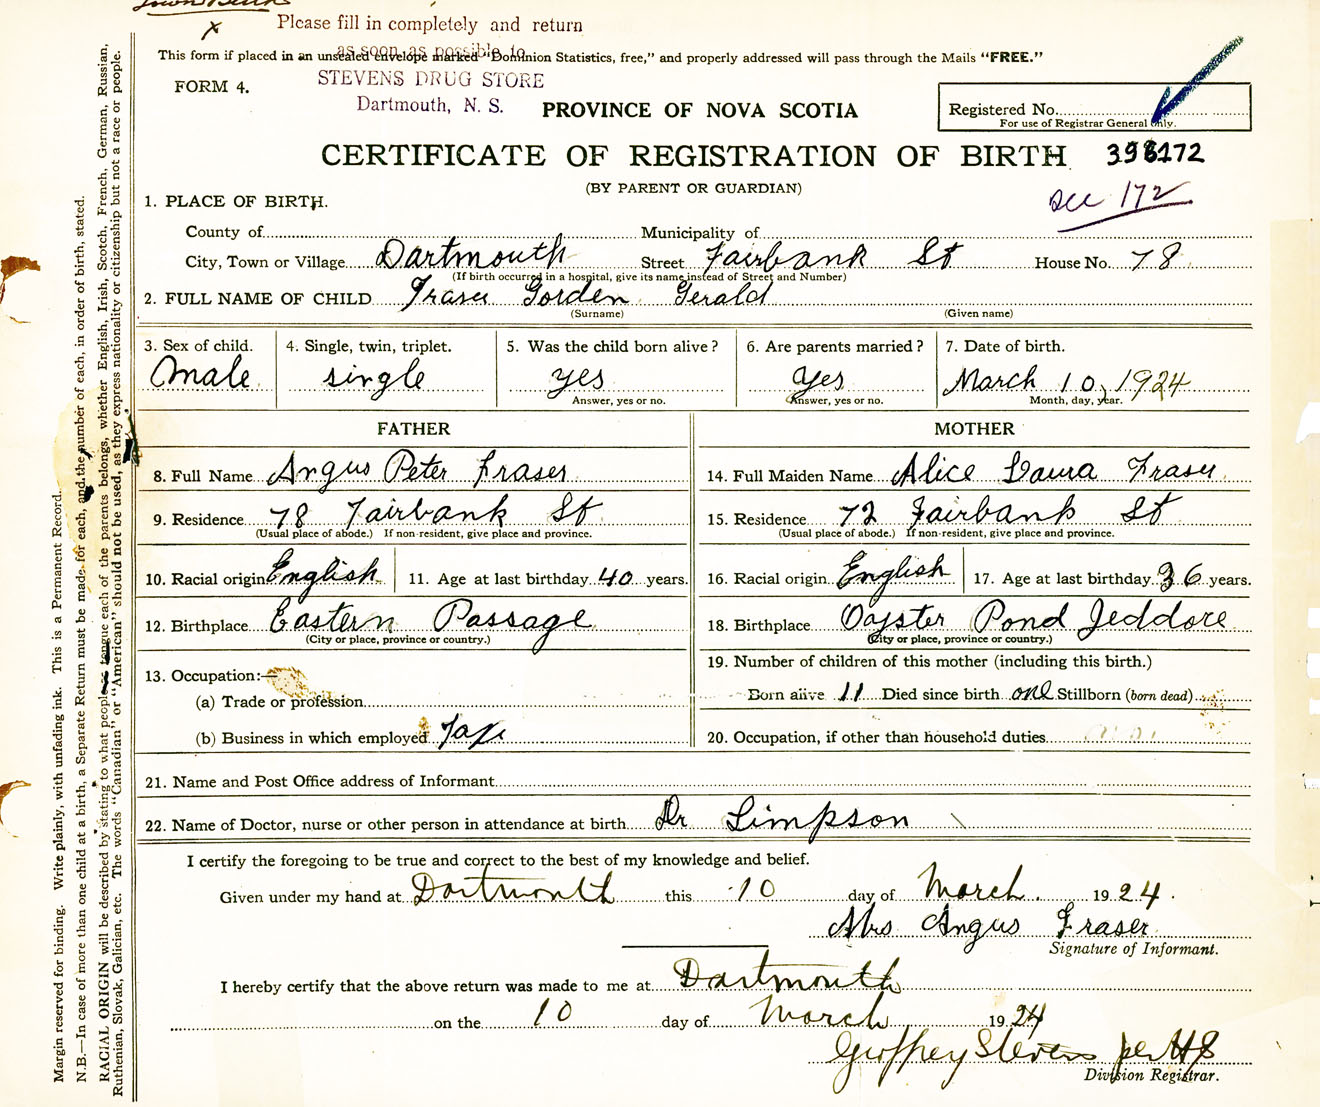 Town Birth
x
Please fill in completely and return
as soon as possible to
This form if placed in an unsealed envelope marked "Dominion Statistics, free," and properly addressed will pass through the Mails "FREE."
FORM 4.
STEVENS DRUG STORE
Dartmouth, N. S.
PROVINCE OF NOVA SCOTIA
Registered No.
For use of Registrar General only.
CERTIFICATE OF REGISTRATION OF BIRTH 398172
(BY PARENT OR GUARDIAN)
see 172
1. PLACE OF BIRTH.
County of Municipality of
City, Town or Village Dartmouth Street Fairbank St House No. 78
(If birth occurred in a hospital, give its name instead of Street and Number)
2. FULL NAME OF CHILD Fraser Gorden Gerald
(Surname) (Given name)
3. Sex of child. 4. Single, twin, triplet. 5. Was the child born alive? 6. Are parents married? 7. Date of birth.
Male single yes yes March 10, 1924
Answer, yes or no. Answer, yes or no. Month, day, year.
FATHER MOTHER
8. Full Name Angus Peter Fraser 14. Full Maiden Name Alice Laura Fraser
9. Residence 78 Fairbank St 15. Residence 72 Fairbank St
(Usual place of abode.) If non-resident, give place and province. (Usual place of abode.) If non-resident, give place and province.
10. Racial origin English 11. Age at last birthday 40 years. 16. Racial origin English 17. Age at last birthday 36 years.
12. Birthplace Eastern Passage 18. Birthplace Oayster Pond Jeddore
(City or place, province or country.) (City or place, province or country.)
13. Occupation:—
19. Number of children of this mother (including this birth.)
(a) Trade or profession
Born alive 11 Died since birth one Stillborn (born dead)
(b) Business in which employed
20. Occupation, if other than household duties
21. Name and Post Office address of Informant
22. Name of Doctor, nurse or other person in attendance at birth Dr Simpson
I certify the foregoing to be true and correct to the best of my knowledge and belief.
Given under my hand at Dartmouth this 10 day of March. 1924.
Mrs Angus Fraser
Signature of Informant.
I hereby certify that the above return was made to me at Dartmouth
on the 10 day of March 1924
Geoffrey Stevens per HS
Division Registrar.
Margin reserved for binding. Write plainly, with unfading ink. This is a Permanent Record.
N.B.—In case of more than one child at a birth, a Separate Return must be made for each, and the number of each, in order of birth, stated.
RACIAL ORIGIN will be described by stating to what people or tongue each of the parents belongs, whether English, Irish, Scotch, French, German, Russian,
Ruthenian, Slovak, Galician, etc. The words "Canadian" or "American" should not be used, as they express nationality or citizenship but not a race or people.